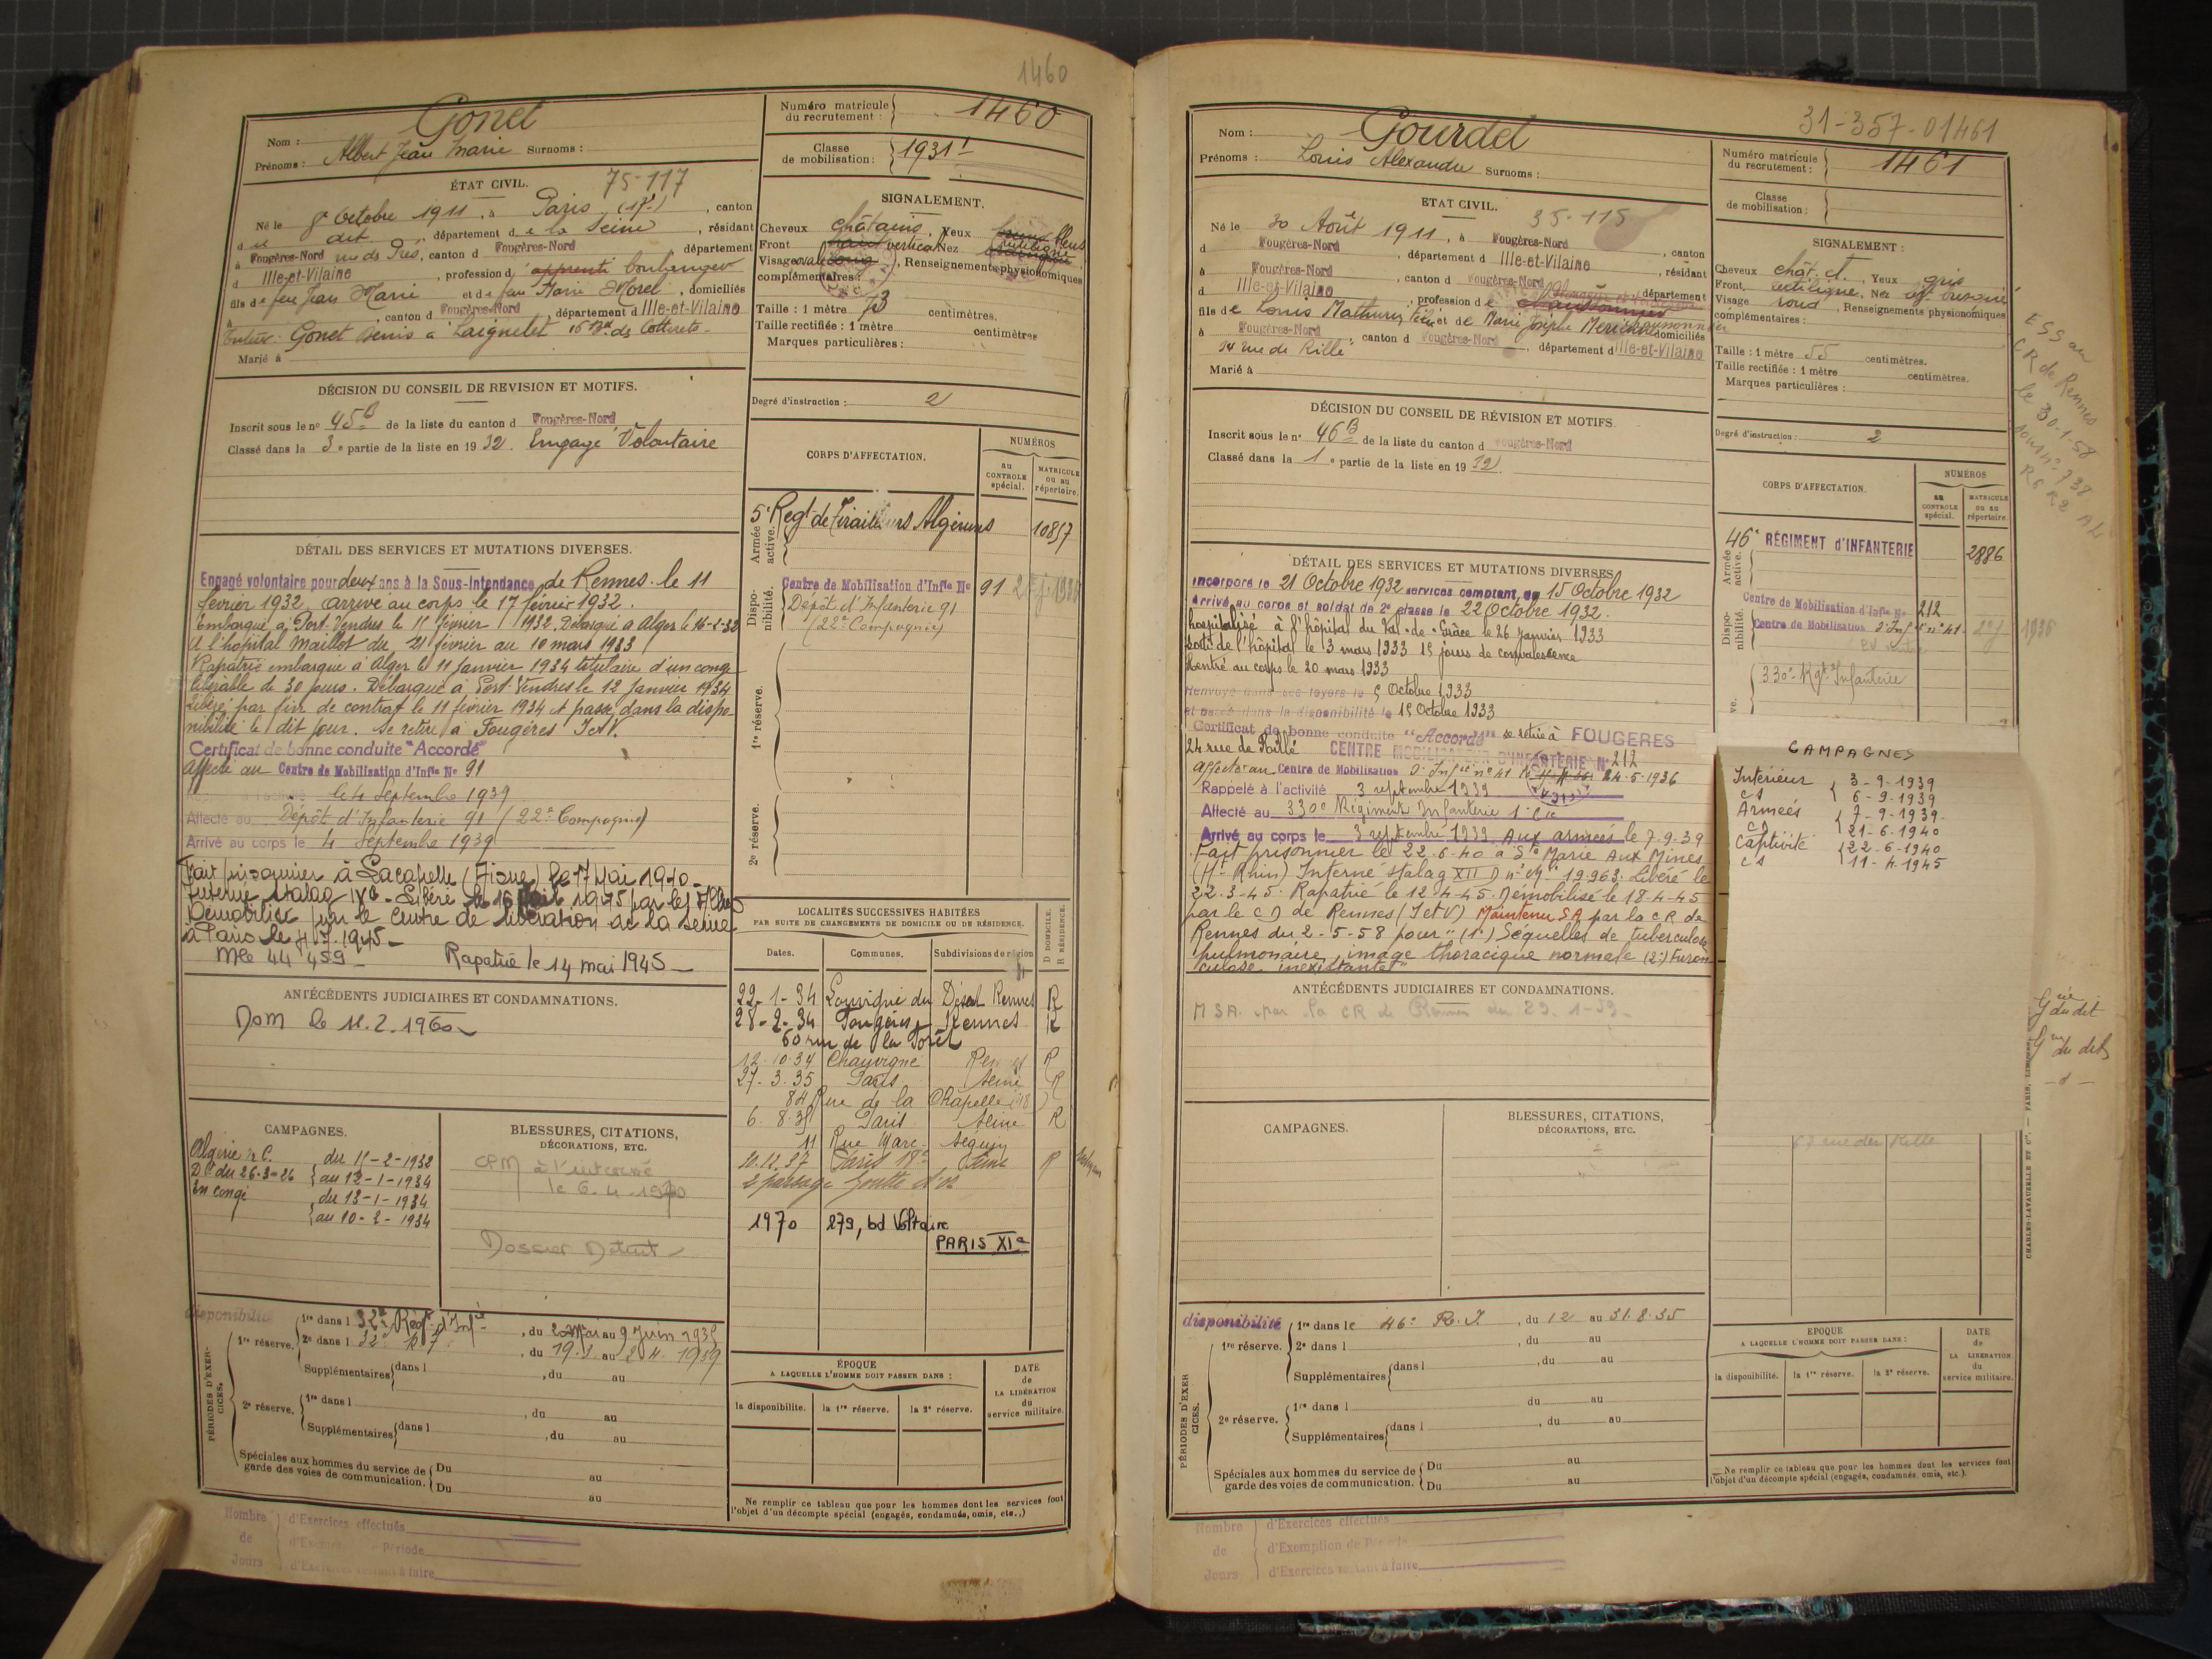 1460
Nom : Gonet
Prénoms : Albert Jean Marie Surnoms :
Numéro matricule du recrutement : 1460
Classe de mobilisation : 1931
ÉTAT CIVIL. 75-117
Né le 8 Octobre 1911, à Paris (17e), canton
d dit, département de la Seine, résidant
à Fougères-Nord rue de Prés, canton d Fougères-Nord, département
d Ille-et-Vilaine, profession d apprenti boulanger
fils de feu Jean Marie et de feu Marie Morel, domiciliés
à, canton d Fougères-Nord, département d Ille-et-Vilaine
tuteur : Gonet Denis à Laignelet 16 Bd des Cotterets
Marié à
SIGNALEMENT.
Cheveux châtains, Yeux bleus
Front vertical Nez rectiligne
Visage ovale, Renseignements physionomiques
complémentaires :
Taille : 1 mètre 73 centimètres.
Taille rectifiée : 1 mètre centimètres
Marques particulières :
Degré d'instruction : 2
DÉCISION DU CONSEIL DE REVISION ET MOTIFS.
Inscrit sous le no 45B de la liste du canton d Fougères-Nord
Classé dans la 3e partie de la liste en 1932. Engagé Volontaire
CORPS D'AFFECTATION.
NUMÉROS
au CONTROLE spécial.
MATRICULE ou au répertoire.
Armée active.
5e Regt de Tirailleurs Algériens 10857
Disponibilité.
Centre de Mobilisation d'Infie No 91
Dépôt d'Infanterie 91
(22e Compagnie)
1re réserve.
2e réserve.
DÉTAIL DES SERVICES ET MUTATIONS DIVERSES.
Engagé volontaire pour deux ans à la Sous-Intendance de Rennes le 11
février 1932, arrivé au corps le 17 février 1932.
Embarqué à Port-Vendres le 15 février 1932. Débarqué à Alger le 16-2-32
A l'hôpital Maillot du 21 février au 10 mars 1933
Rapatrié embarqué à Alger le 11 Janvier 1934 titulaire d'un congé
libérable de 30 jours. Débarqué à Port Vendres le 12 Janvier 1934
Libéré par fin de contrat le 11 février 1934 et passé dans la dispo-
nibilité le dit jour. Se retire à Fougères I et V.
Certificat de bonne conduite "Accordé"
Affecté au Centre de Mobilisation d'Infie No 91
le 4 Septembre 1939
Affecté au Dépôt d'Infanterie 91 (22e Compagnie)
Arrivé au corps le 4 Septembre 1939
Fait prisonnier à Lacapelle (Aisne) le 17 Mai 1940
Interné Stalag IV C - Libéré le 16 1945 par les
Démobilisé par le centre de libération de la Seine
à Paris le 1945
Mle 44 459 Rapatrié le 14 mai 1945
ANTÉCÉDENTS JUDICIAIRES ET CONDAMNATIONS.
DOM le 11.2.1960
LOCALITÉS SUCCESSIVES HABITÉES
PAR SUITE DE CHANGEMENTS DE DOMICILE OU DE RÉSIDENCE.
D DOMICILE. R RÉSIDENCE.
Dates. Communes. Subdivisions de région
22-1-34 Louvigné du Désert Rennes R
28-2-34 Fougères Rennes R
60 rue de la Forêt
12-10-34 Chauvigné Rennes R
27-3-35 Paris Seine R
84 Rue de la Chapelle (18)
6.8.35 Paris Seine R
11 Rue Marc Séguin
20.11.37 Paris 18e Seine R
2 passage Goutte d'or
1970 279, bd Voltaire
PARIS XIe
CAMPAGNES.
Algérie n.C. du 15-2-1932
Dt du 26-3-26 au 12-1-1934
En congé du 13-1-1934
au 10-2-1934
BLESSURES, CITATIONS,
DÉCORATIONS, ETC.
CPM à l'intéressé
le 6.4.1970
Dossier Détruit
PÉRIODES D'EXERCICES.
disponibilité
1re réserve. 1re dans l 32e Régt d'Infie, du 2 Mai au 9 Juin 1935
2e dans l 32e R I, du 19.3. au 8 4. 1939
Supplémentaires dans l, du au
2e réserve. 1re dans l, du au
Supplémentaires dans l, du au
Spéciales aux hommes du service de garde des voies de communication. Du au
Du au
ÉPOQUE
A LAQUELLE L'HOMME DOIT PASSER DANS :
la disponibilité. la 1re réserve. la 2e réserve.
DATE de LA LIBÉRATION du service militaire.
Ne remplir ce tableau que pour les hommes dont les services font
l'objet d'un décompte spécial (engagés, condamnés, omis, etc.,)
Nombre de Jours
d'Exercices effectués
d'Exemption de Période
d'Exercices restant à faire
31-357-01461
Nom : Gourdel
Prénoms : Louis Alexandre Surnoms :
Numéro matricule du recrutement : 1461
Classe de mobilisation :
ETAT CIVIL. 35-115
Né le 30 Août 1911, à Fougères-Nord
d Fougères-Nord, département d Ille-et-Vilaine, canton
à Fougères-Nord, canton d Fougères-Nord, résidant
d Ille-et-Vilaine, profession de, département
fils de Louis Mathurin et de Marie Josèphe domiciliés
à Fougères-Nord canton d Fougères-Nord, département d Ille-et-Vilaine
14 rue de Rillé
Marié à
SIGNALEMENT :
Cheveux chât. , Yeux gris
Front rectiligne, Nez busqué
Visage rond, Renseignements physionomiques
complémentaires :
Taille : 1 mètre 55 centimètres.
Taille rectifiée : 1 mètre centimètres.
Marques particulières :
Degré d'instruction : 2
ESS au
CR de Rennes
le 30-1-58
sous no 738
R6 R2 AL
DÉCISION DU CONSEIL DE RÉVISION ET MOTIFS.
Inscrit sous le no 46B de la liste du canton d Fougères-Nord
Classé dans la 1e partie de la liste en 1932.
CORPS D'AFFECTATION.
NUMÉROS
au CONTROLE spécial.
MATRICULE ou au répertoire.
Armée active.
46e RÉGIMENT d'INFANTERIE 2886
Disponibilité.
Centre de Mobilisation d'Infie No 212
Centre de Mobilisation d'Infie no 41 1936
330e Rgt Infanterie
DÉTAIL DES SERVICES ET MUTATIONS DIVERSES
Incorporé le 21 Octobre 1932 services comptant du 15 Octobre 1932
Arrivé au corps et soldat de 2e classe le 22 Octobre 1932.
hospitalisé à l'hôpital du Val-de-Grâce le 26 Janvier 1933
sorti de l'hôpital le 3 mars 1933 15 jours de convalescence
Rentré au corps le 20 mars 1933
Renvoyé dans ses foyers le 5 Octobre 1933
et passé dans la disponibilité le 15 Octobre 1933
Certificat de bonne conduite "Accordé" se retire à FOUGERES
24 rue de Rillé CENTRE MOBILISATEUR D'INFANTERIE No 212
Affecté au Centre de Mobilisation d'Infie no 41 le 24-5-1936
Rappelé à l'activité 3 septembre 1939
Affecté au 330e Régiment Infanterie 1e Cie
Arrivé au corps le 3 septembre 1939 Aux armées le 7.9.39
Fait prisonnier le 22-6-40 à Ste Marie Aux Mines
(Ht Rhin) Interné stalag XII D no M. 19.963. Libéré le
22-3-45. Rapatrié le 12-4-45. Démobilisé le 18-4-45
par le C D de Rennes (I et V) Maintenu SA par la CR de
Rennes du 2-5-58 pour "(1o) Séquelles de tuberculose
pulmonaire, image thoracique normale (2o) Furon
culose inexistante"
ANTÉCÉDENTS JUDICIAIRES ET CONDAMNATIONS.
M S A. par la CR de Rennes du 29-1-59
CAMPAGNES
Intérieur 3-9-1939
cs 6-9-1939
Armées 7-9-1939
cd 21-6-1940
Captivité 22-6-1940
cs 11-4-1945
Gué du dit
du dit
CAMPAGNES.
BLESSURES, CITATIONS,
DÉCORATIONS, ETC.
rue de Rillé
CHARLES-LAVAUZELLE ET Cie. — PARIS, LIMOGES, NANCY
PÉRIODES D'EXERCICES.
disponibilité
1re réserve. 1re dans le 46e R.I., du 12 au 31.8.35
2e dans l, du au
Supplémentaires dans l, du au
2e réserve. 1re dans l du au
Supplémentaires dans l, du au
Spéciales aux hommes du service de garde des voies de communication. Du au
Du au
EPOQUE
A LAQUELLE L'HOMME DOIT PASSER DANS :
la disponibilité. la 1re réserve. la 2e réserve.
DATE de LA LIBERATION du service militaire.
Ne remplir ce tableau que pour les hommes dont les services font
l'objet d'un décompte spécial (engagés, condamnés, omis, etc.).
Nombre de Jours
d'Exercices effectués
d'Exemption de Période
d'Exercices restant à faire